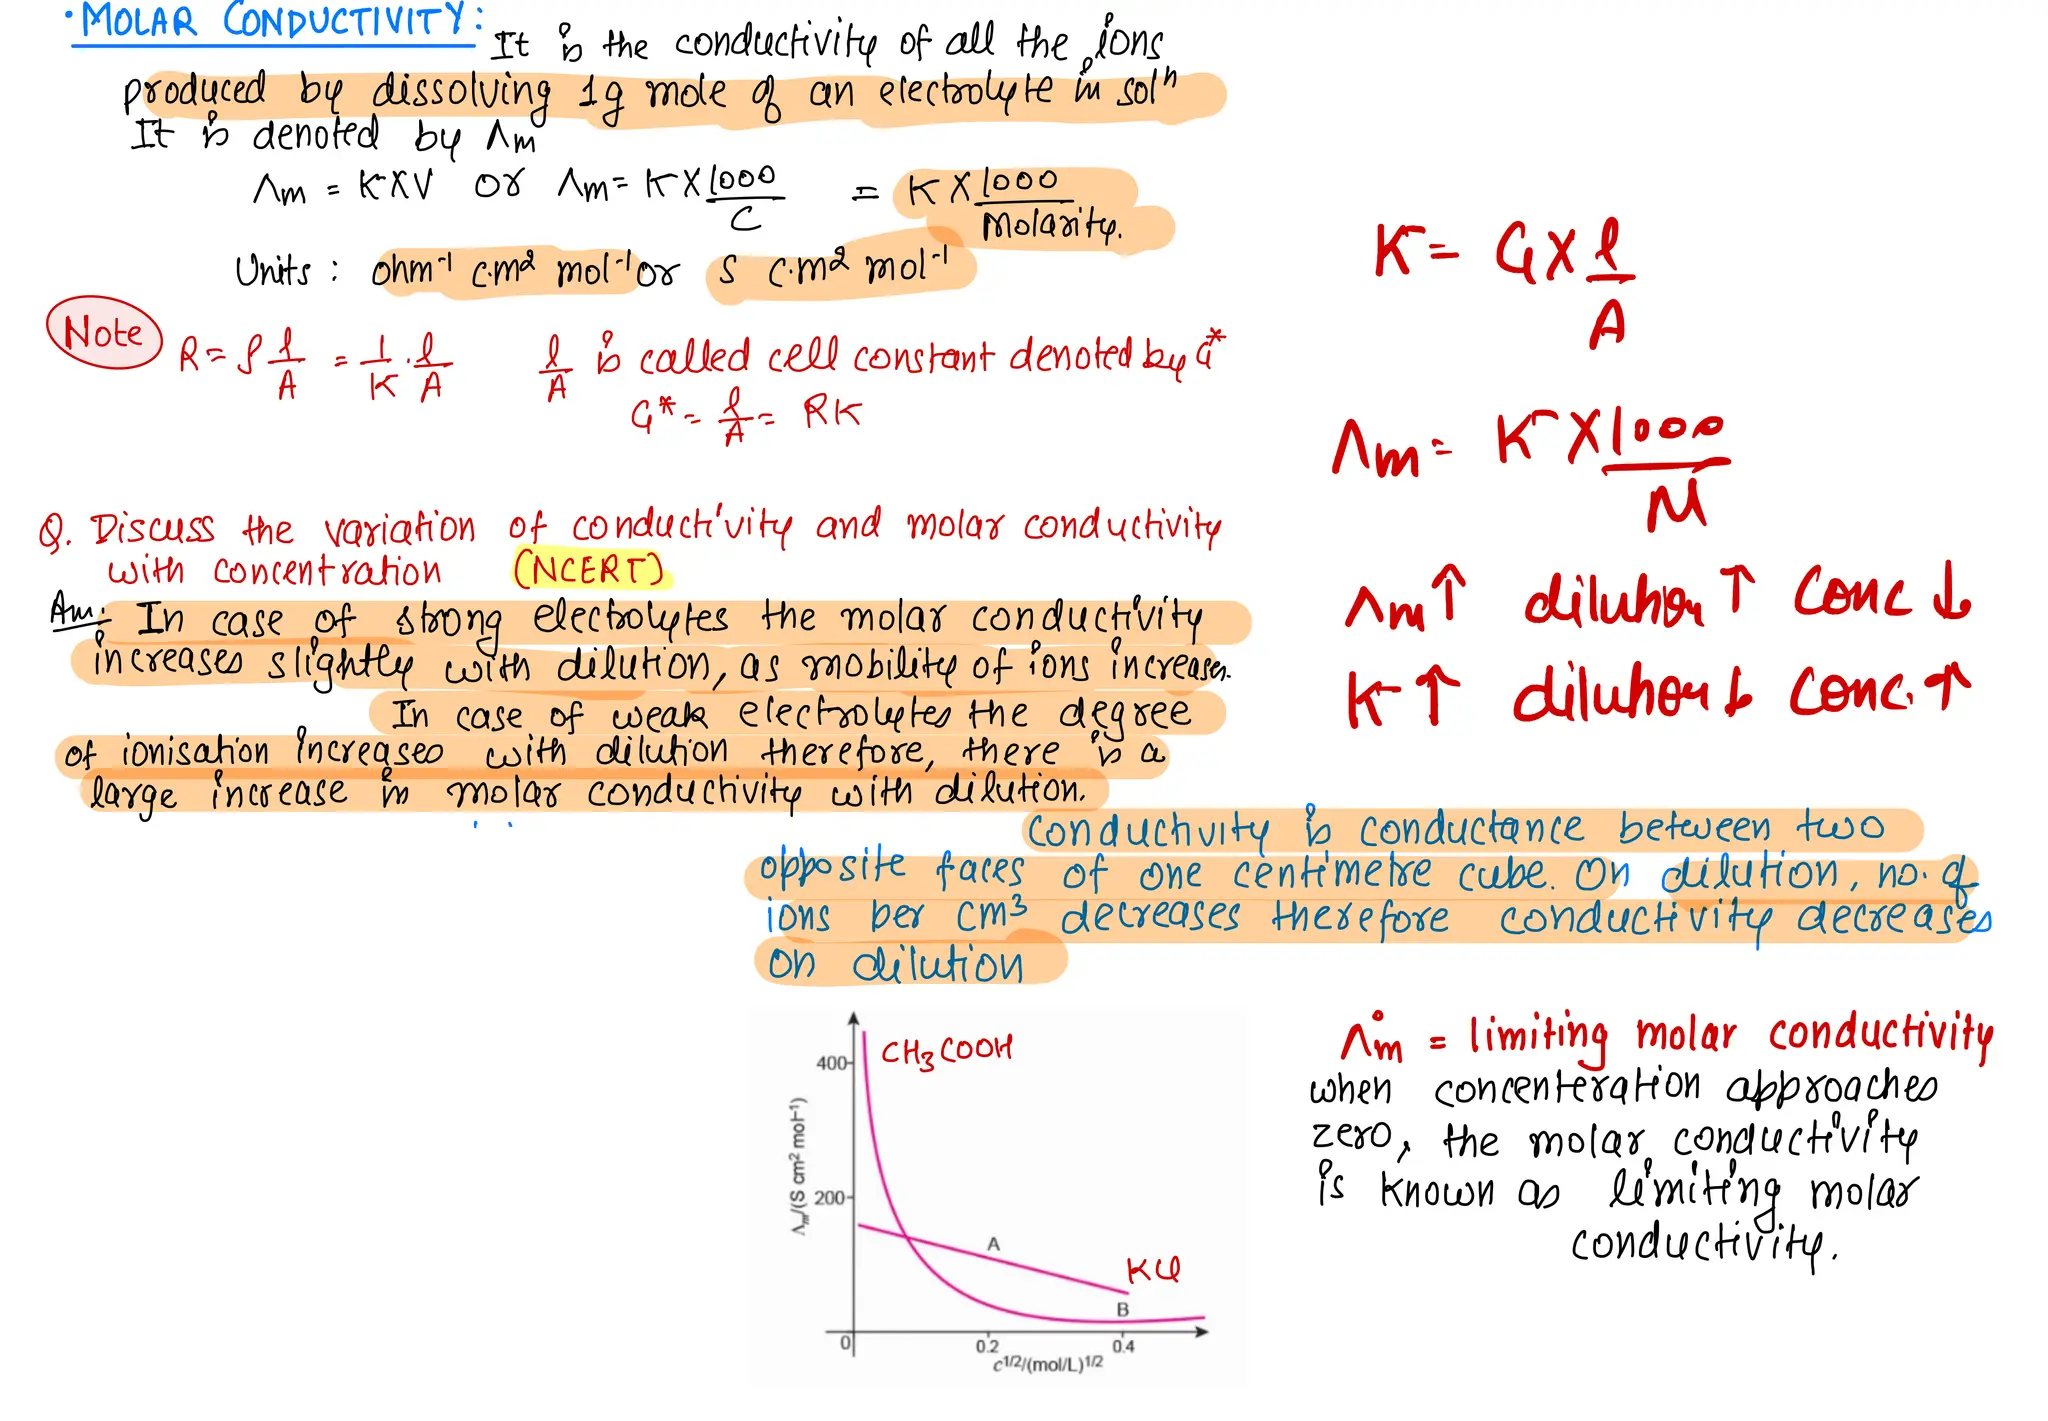 · MOLAR CONDUCTIVITY: It is the conductivity of all the ions
produced by dissolving 1g mole of an electrolyte in solⁿ
It is denoted by Λm
Λm = K X V or Λm = K X 1000/C = K X 1000/Molarity.
Units : ohm⁻¹ cm² mol⁻¹ or S cm² mol⁻¹
Note R = ρ l/A = 1/K · l/A l/A is called cell constant denoted by G*
G* = l/A = RK
K = G X l/A
Λm = K X 1000/M
Λm↑ dilution↑ conc↓
K↑ dilution↓ conc.↑
Q. Discuss the variation of conductivity and molar conductivity
with concentration (NCERT)
Ans: In case of strong electrolytes the molar conductivity
increases slightly with dilution, as mobility of ions increases.
In case of weak electrolytes the degree
of ionisation increases with dilution therefore, there is a
large increase in molar conductivity with dilution.
conductivity is conductance between two
opposite faces of one centimetre cube. On dilution, no. of
ions per cm³ decreases therefore conductivity decreases
on dilution
CH₃COOH
400
Λm/(S cm² mol⁻¹)
200
A
KCl
B
0
0.2
0.4
c1/2/(mol/L)1/2
Λ°m = limiting molar conductivity
when concenteration approaches
zero, the molar conductivity
is known as limiting molar
conductivity.